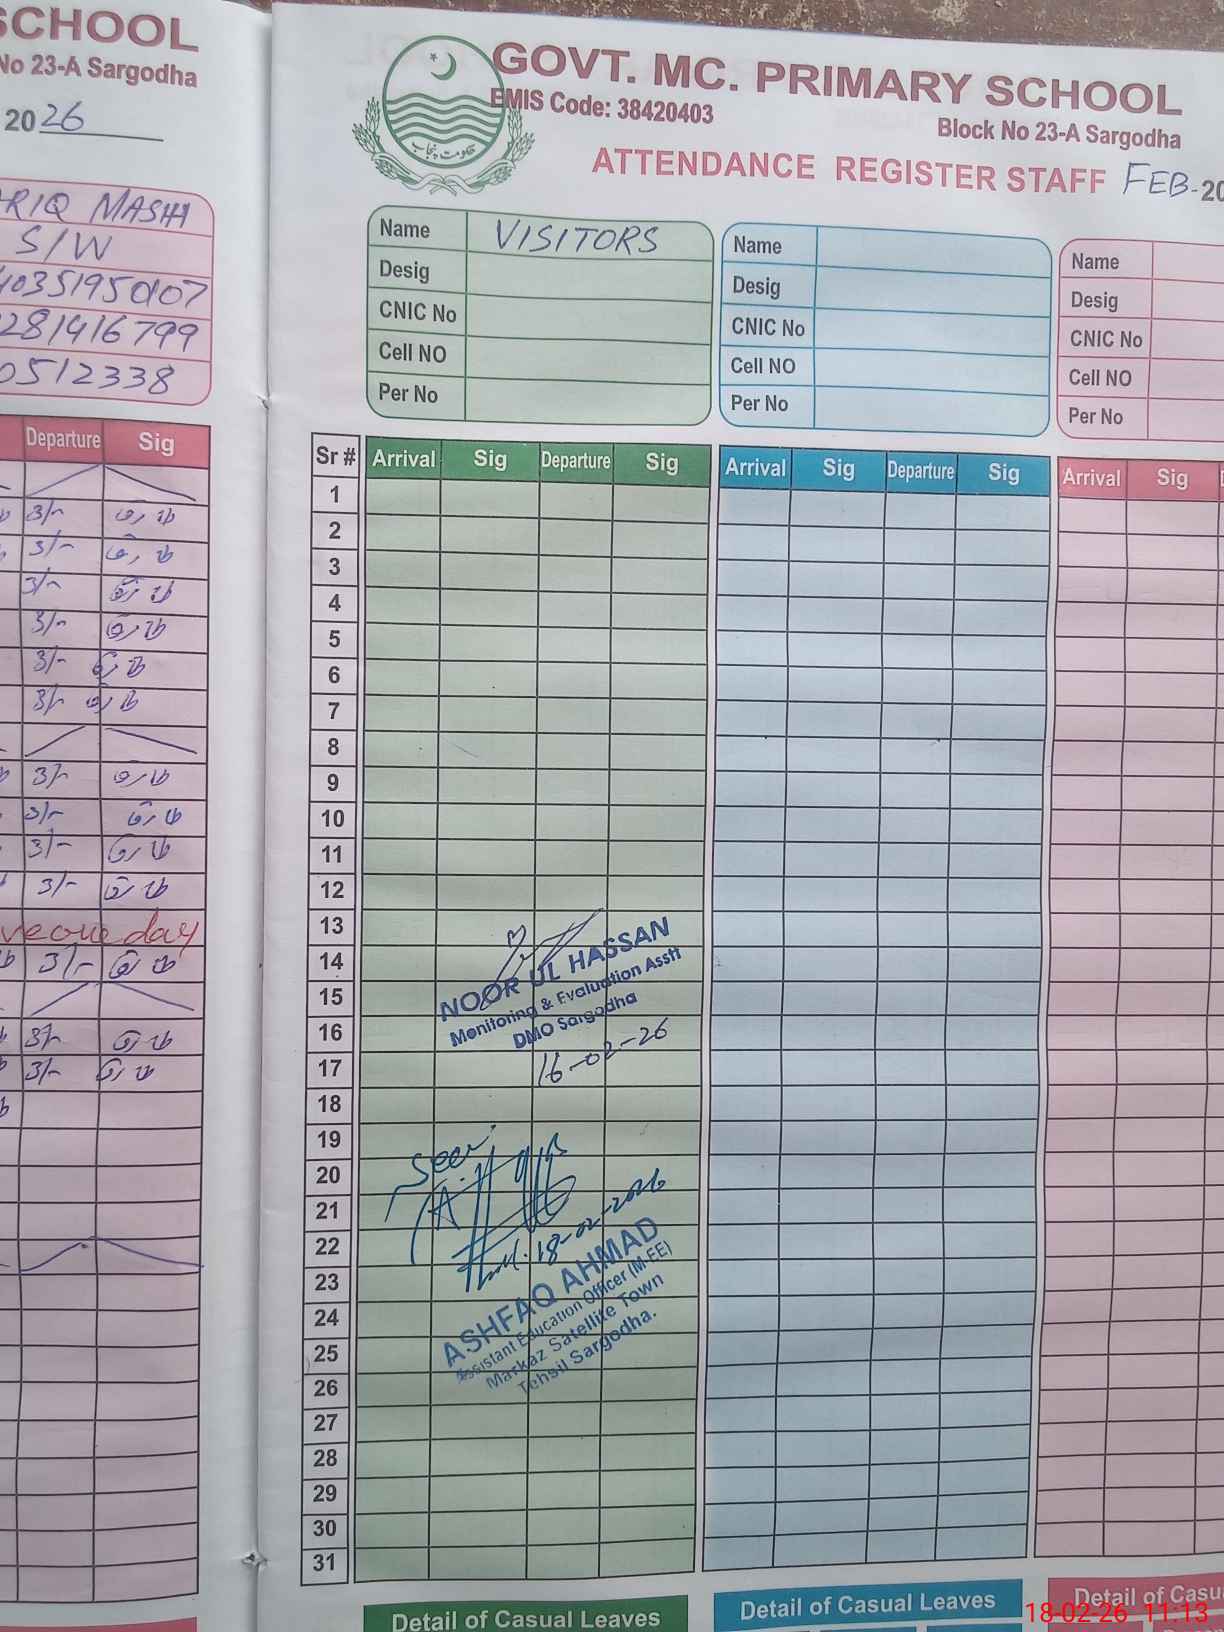 SCHOOL
No 23-A Sargodha
2026
ARIQ MASHI
S/W
Departure Sig
3/-
3/-
3/-
3/-
3/-
3/-
3/-
3/-
3/-
3/-
ve one day
3/-
3/-
3/-
GOVT. MC. PRIMARY SCHOOL
EMIS Code: 38420403
Block No 23-A Sargodha
حکومت پنجاب
ATTENDANCE REGISTER STAFF FEB-20
Name VISITORS
Desig
CNIC No
Cell NO
Per No
Name
Desig
CNIC No
Cell NO
Per No
Name
Desig
CNIC No
Cell NO
Per No
Sr # Arrival Sig Departure Sig Arrival Sig Departure Sig Arrival Sig
1
2
3
4
5
6
7
8
9
10
11
12
13
14
15
16
17
18
19
20
21
22
23
24
25
26
27
28
29
30
31
NOOR UL HASSAN
Monitoring & Evaluation Asstt
DMO Sargodha
16-02-26
Seen
18-02-2026
ASHFAQ AHMAD
Assistant Education Officer (M-EE)
Markaz Satellite Town
Tehsil Sargodha.
Detail of Casual Leaves
Detail of Casual Leaves
Detail of Casu
18-02-26 11:13